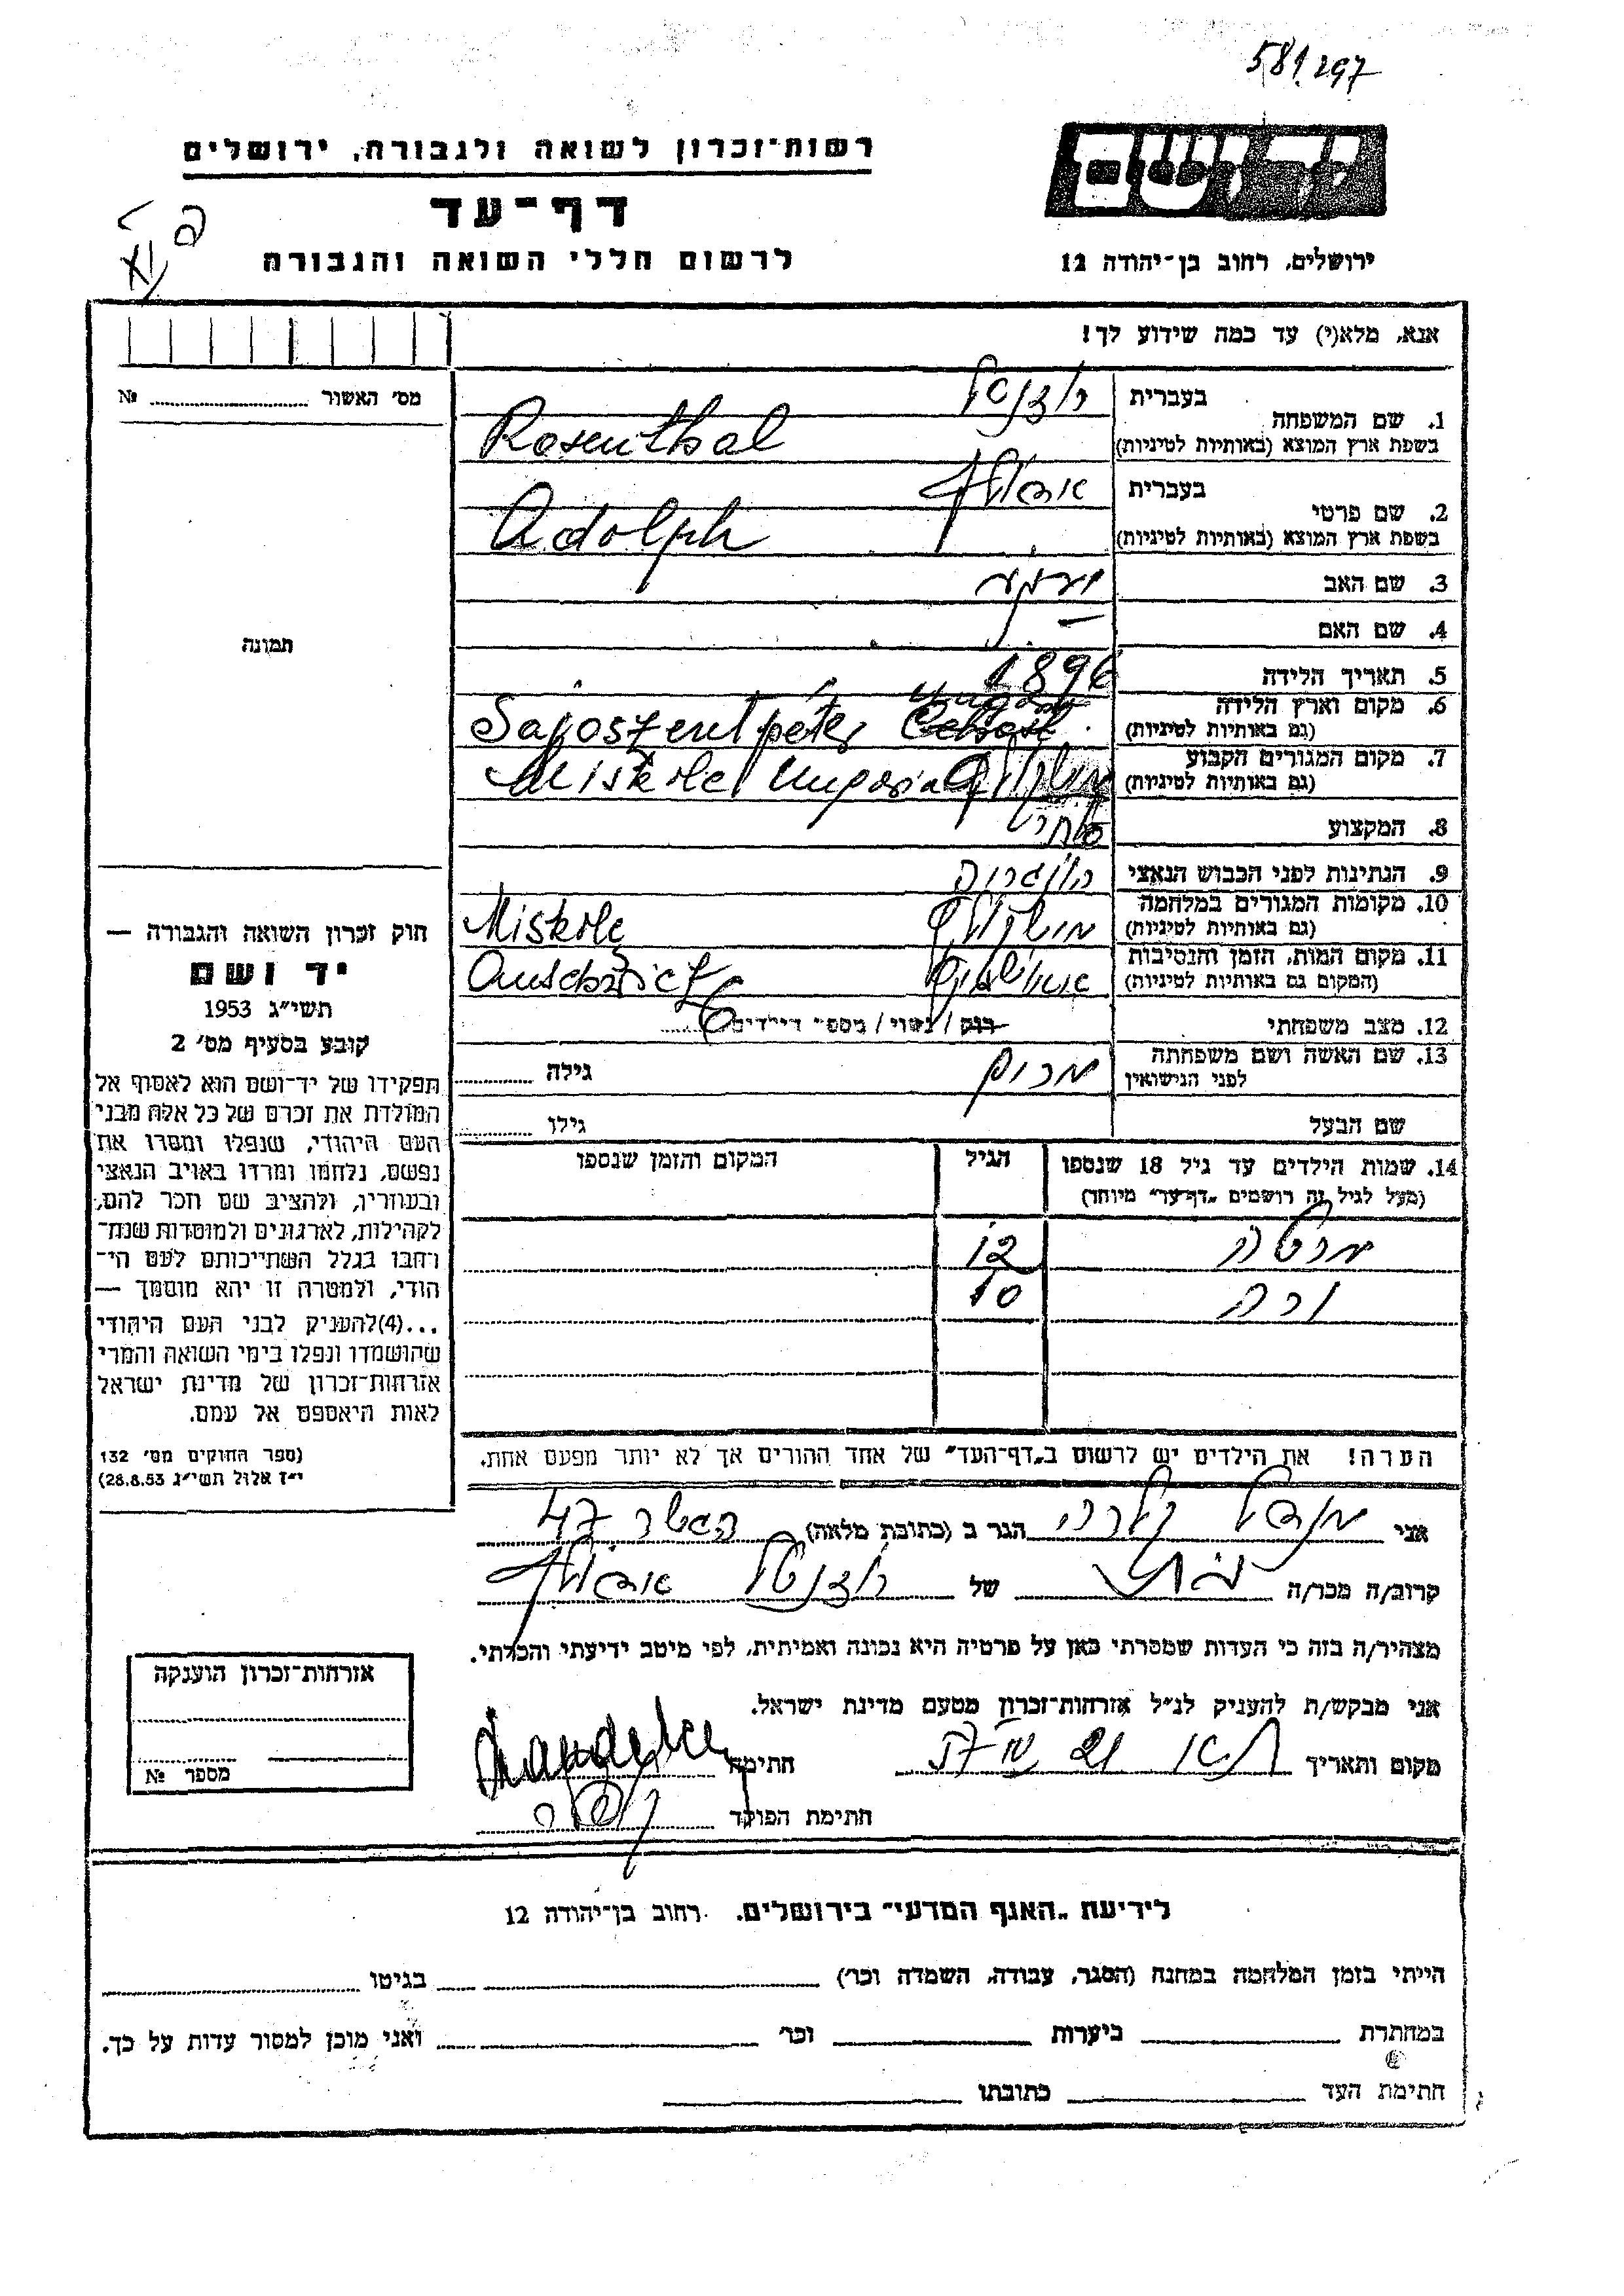 581.297
רשות־זכרון לשואה ולגבורה, ירושלים
יד ושם
דף־עד
לרשום חללי השואה והגבורה
ירושלים, רחוב בן־יהודה 12
אנא, מלא(י) עד כמה שידוע לך!
מס׳ האשור № 
תמונה
1. שם המשפחה
בעברית רוזנטל
בשפת ארץ המוצא (באותיות לטיניות) Rosenthal
2. שם פרטי
בעברית אדולף
בשפת ארץ המוצא (באותיות לטיניות) Adolph
3. שם האב
4. שם האם —
5. תאריך הלידה 1896
6. מקום וארץ הלידה
(גם באותיות לטיניות) Sajoszentpéter
7. מקום המגורים הקבוע
(גם באותיות לטיניות) Miskolc Ungaria
8. המקצוע סוחר
9. הנתינות לפני הכבוש הנאצי הונגריה
10. מקומות המגורים במלחמה
(גם באותיות לטיניות) מישקולץ Miskolc
11. מקום המות, הזמן והנסיבות
(המקום גם באותיות לטיניות) אושוויץ
12. מצב משפחתי רוק / נשוי / מספר הילדים 6
13. שם האשה ושם משפחתה
לפני הנישואין גילה
שם הבעל גילו
14. שמות הילדים עד גיל 18 שנספו הגיל המקום והזמן שנספו
(מעל לגיל זה רושמים „דף־עד״ מיוחד)
מרטה 12
ורה 10
הערה! את הילדים יש לרשום ב„דף־העד״ של אחד ההורים אך לא יותר מפעם אחת.
חוק זכרון השואה והגבורה —
יד ושם
תשי״ג 1953
קובע בסעיף מס׳ 2
תפקידו של יד־ושם הוא לאסוף אל
המולדת את זכרם של כל אלה מבני
העם היהודי, שנפלו ומסרו את
נפשם, נלחמו ומרדו באויב הנאצי
ובעוזריו, ולהציב שם וזכר להם,
לקהילות, לארגונים ולמוסדות שנח־
רבו בגלל השתייכותם לעם הי־
הודי, ולמטרה זו יהא מוסמך —
...(4) להעניק לבני העם היהודי
שהושמדו ונפלו בימי השואה והמרי
אזרחות־זכרון של מדינת ישראל
לאות היאספם אל עמם.
(ספר החוקים מס׳ 132
י״ז אלול תשי״ג 28.8.53)
אני מנדל קלרה הגר ב (כתובת מלאה) 47
קרוב/ה מכר/ה של רוזנטל אדולף
מצהיר/ה בזה כי העדות שמסרתי כאן על פרטיה היא נכונה ואמיתית, לפי מיטב ידיעתי והכרתי.
אני מבקש/ת להעניק לנ״ל אזרחות־זכרון מטעם מדינת ישראל.
מקום ותאריך חתימה
חתימת הפוקד
אזרחות־זכרון הוענקה
מספר №
לידיעת „האגף המדעי״ בירושלים. רחוב בן־יהודה 12
הייתי בזמן המלחמה במחנה (הסגר, עבודה, השמדה וכו׳) בגיטו
במחתרת ביערות וכו׳ ואני מוכן למסור עדות על כך.
חתימת העד כתובתו